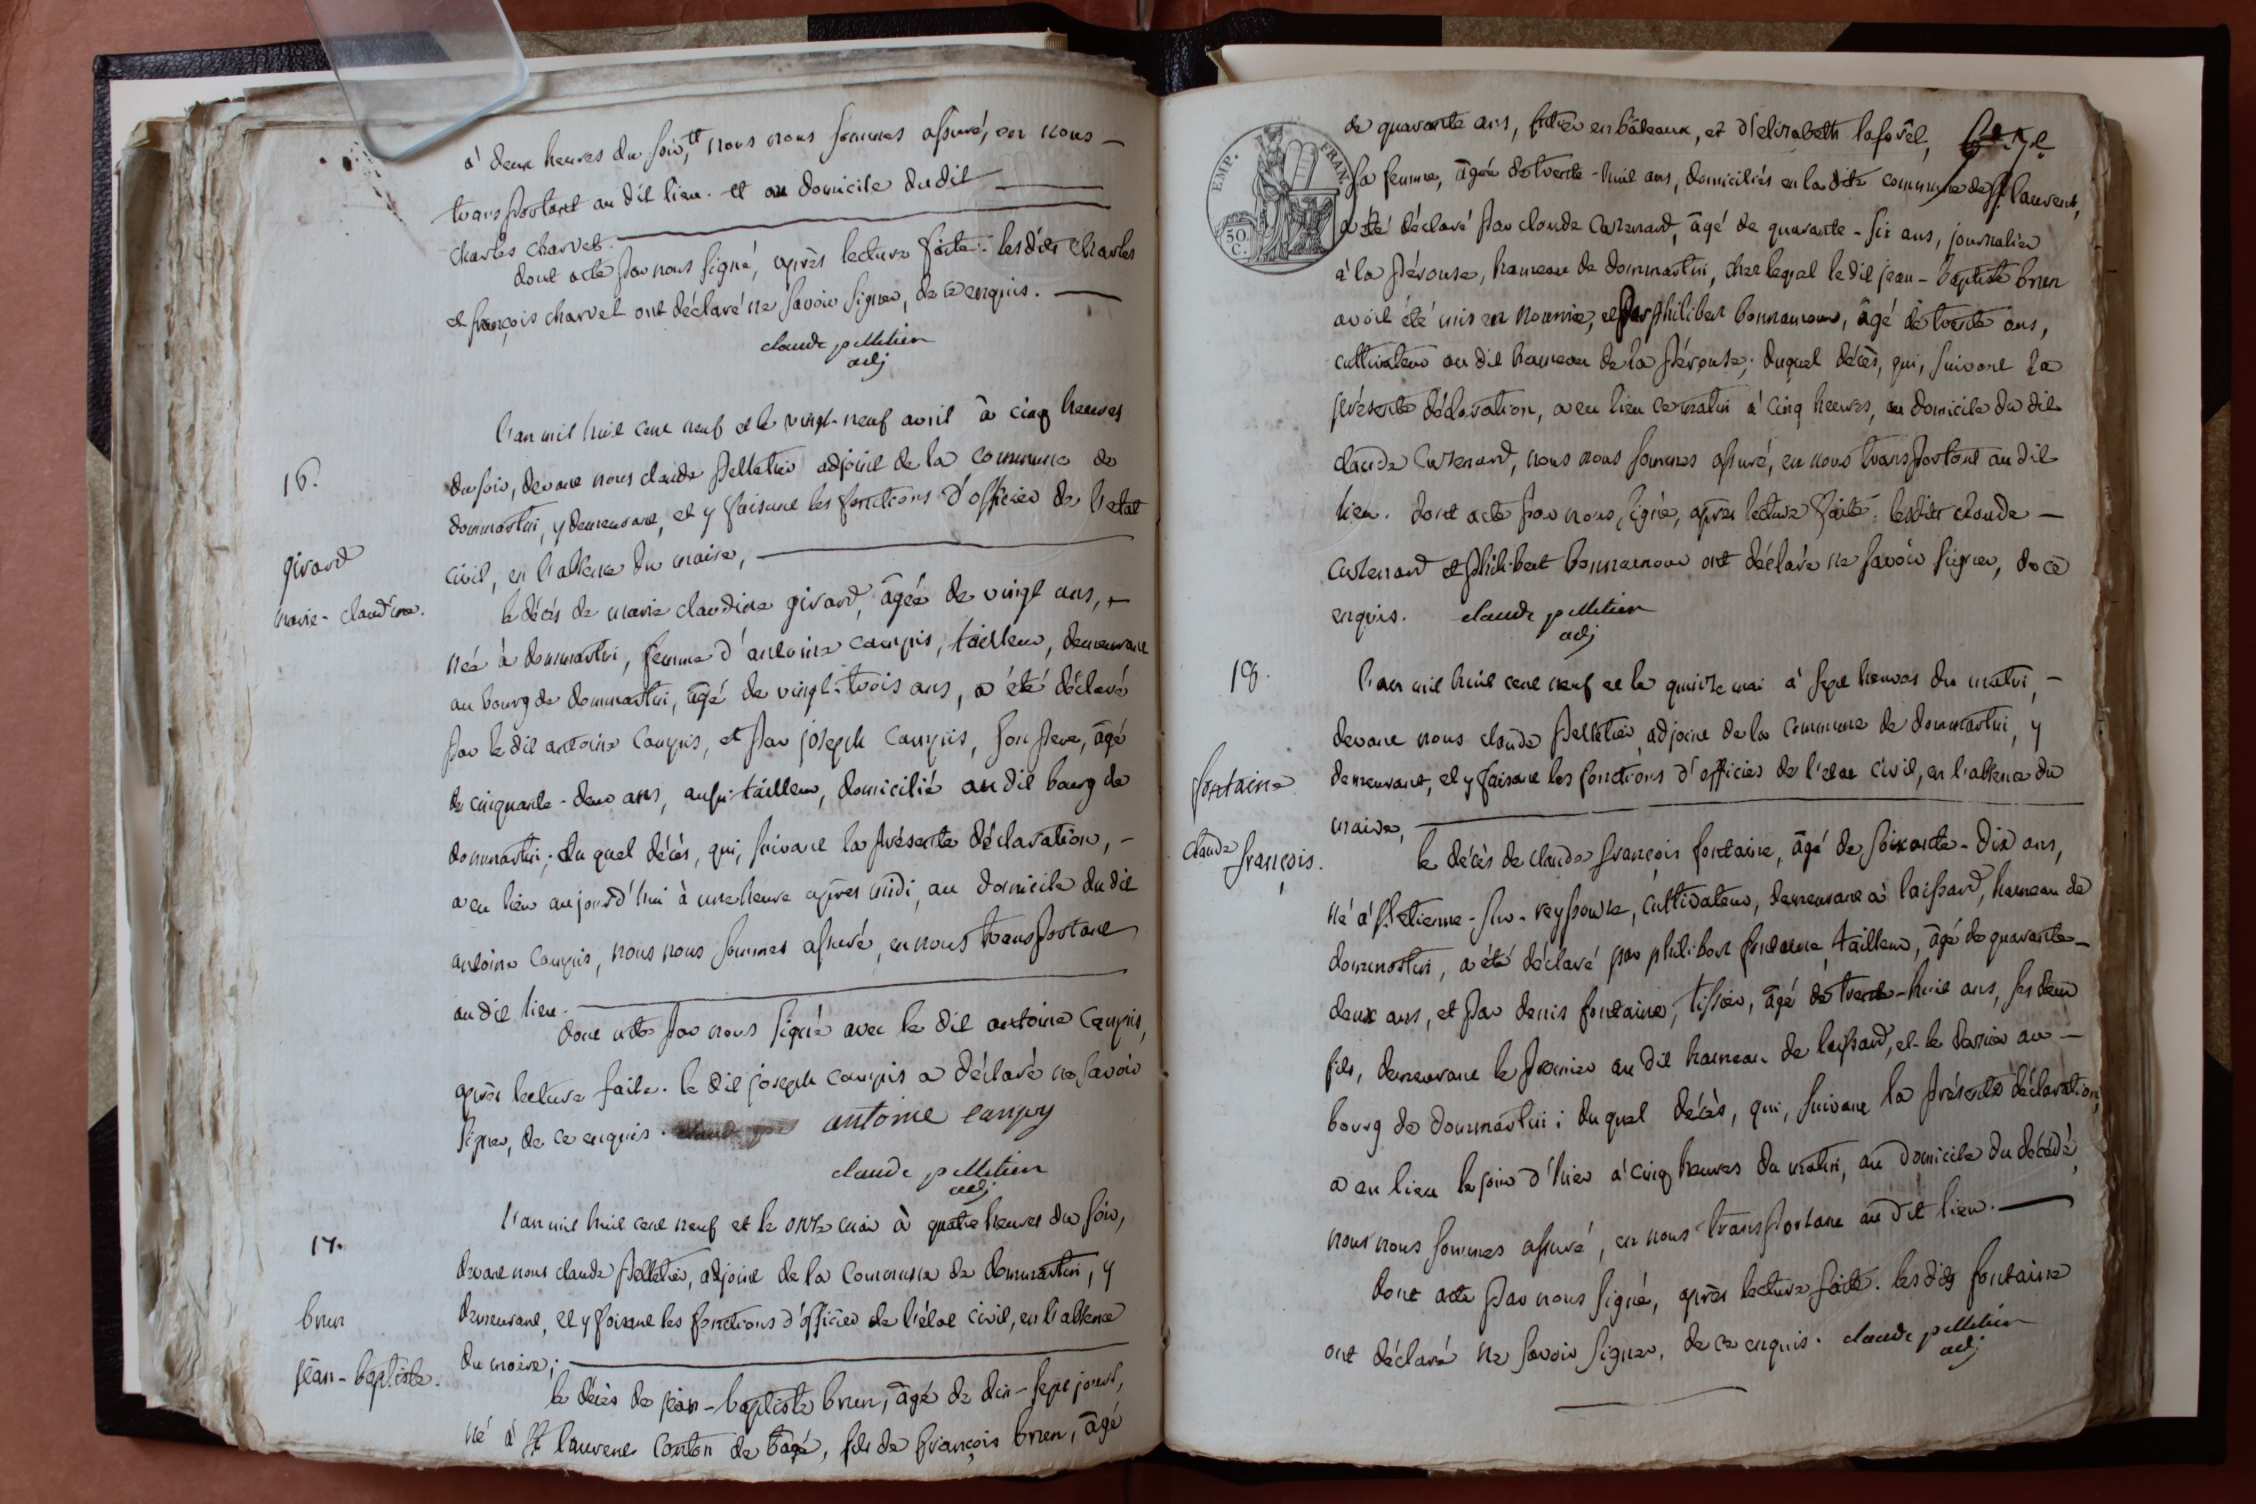 à deux heures du soir, et nous nous sommes assuré, en nous —
transportant au dit lieu. et au domicile du dit
charles charvet.
dont acte par nous signé, après lecture faite. les dits charles
et françois charvet ont déclaré ne savoir signer, de ce enquis.
claude pelletier
adj
16.
girard
marie-claudine.
l'an mil huit cent neuf et le vingt-neuf avril à cinq heures
du soir, devant nous claude pelletier adjoint de la commune de
dommartin, y demeurant, et y faisant les fonctions d'officier de l'etat
civil, en l'absence du maire,
le décès de marie claudine girard, âgée de vingt ans, —
née à dommartin, femme d'antoine campis, tailleur, demeurant
au bourg de dommartin, âgé de vingt-trois ans, a été déclaré
par le dit antoine campis, et par joseph campis, son pere, âgé
de cinquante-deux ans, aussi tailleur, domicilié au dit bourg de
dommartin; du quel décès, qui, suivant la présente déclaration, —
a eu lieu aujourd'hui à une heure après midi, au domicile du dit
antoine campis, nous nous sommes assuré, en nous transportant
au dit lieu.
dont acte par nous signé avec le dit antoine campis,
après lecture faite. le dit joseph campis a déclaré ne savoir
signer, de ce enquis. antoine campy
claude pelletier
adj
17.
brun
jean-baptiste.
l'an mil huit cent neuf et le onze mai à quatre heures du soir,
devant nous claude pelletier, adjoint de la commune de dommartin, y
demeurant, et y faisant les fonctions d'officier de l'état civil, en l'absence
du maire;
le décès de jean-baptiste brun, âgé de dix-sept jours,
né à st laurent canton de bâgé, fils de françois brun, âgé
EMP. FRAN.
50 C.
de quarante ans, en bâteaux, et d'elizabeth
sa femme, âgée de trente-huit ans, domiciliés en la dite commune de st laurent,
a été déclaré par claude âgé de quarante-six ans, journalier
à la pérouse, hameau de dommartin, chez lequel le dit jean-baptiste brun
avoit été mis en nourrice, et par philibert bonnamour, âgé de trente ans,
cultivateur au dit hameau de la pérouse; duquel décès, qui, suivant la
présente déclaration, a eu lieu ce matin à cinq heures, au domicile du dit
claude nous nous sommes assuré, en nous transportant au dit
lieu. dont acte par nous signé, après lecture faite. les dits claude —
et philibert bonnamour ont déclaré ne savoir signer, de ce
enquis. claude pelletier
adj
18.
fontaine
claude
françois.
l'an mil huit cent neuf et le quinze mai à sept heures du matin, —
devant nous claude pelletier, adjoint de la commune de dommartin, y
demeurant, et y faisant les fonctions d'officier de l'etat civil, en l'absence du
maire,
le décès de claude françois fontaine, âgé de soixante-dix ans,
né à st. etienne-sur-reyssouze, cultivateur, demeurant à laissard, hameau de
dommartin, a été déclaré par philibert fontaine, tailleur, âgé de quarante-
deux ans, et par denis fontaine, tissier, âgé de trente-huit ans, ses deux
fils, demeurant le premier au dit hameau de et le dernier au —
bourg de dommartin; du quel décès, qui, suivant la présente déclaration,
a eu lieu le jour d'hier à cinq heures du matin, au domicile du décédé,
nous nous sommes assuré, en nous transportant au dit lieu.
dont acte par nous signé, après lecture faite. les dits fontaine
ont déclaré ne savoir signer, de ce enquis. claude pelletier
adj